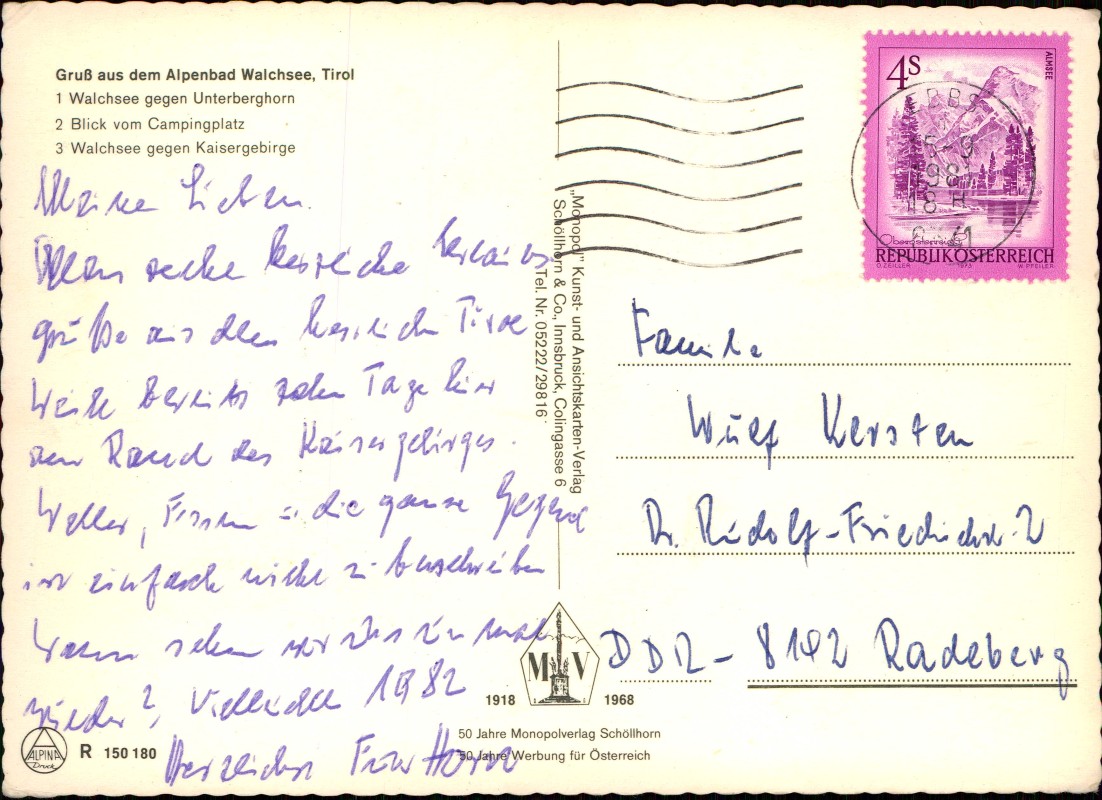 Gruß aus dem Alpenbad Walchsee, Tirol
1 Walchsee gegen Unterberghorn
2 Blick vom Campingplatz
3 Walchsee gegen Kaisergebirge
Meine Lieben.
herzliche
grüße aus dem Tirol
bereits zehn Tage hier
am Rand des Kaisergebirges.
Wetter, Essen die ganze Gegend
ist einfach nicht zu beschreiben
Wann sehen wir uns mal
wieder? Vielleicht 1982
Herzlichst
ALPINA
Druck
R 150 180
"Monopol" Kunst- und Ansichtskarten-Verlag
Schöllhorn & Co., Innsbruck, Colingasse 6
Tel. Nr. 05222/29816
M V
1918 1968
50 Jahre Monopolverlag Schöllhorn
50 Jahre Werbung für Österreich
4S
ALMSEE
Oberösterreich
REPUBLIK ÖSTERREICH
O. ZEILLER 1973 W. PFEILER
18 H
Familie
Wulf Kersten
Dr. Rudolf-Friedrichstr. 2
DDR - 8142 Radeberg